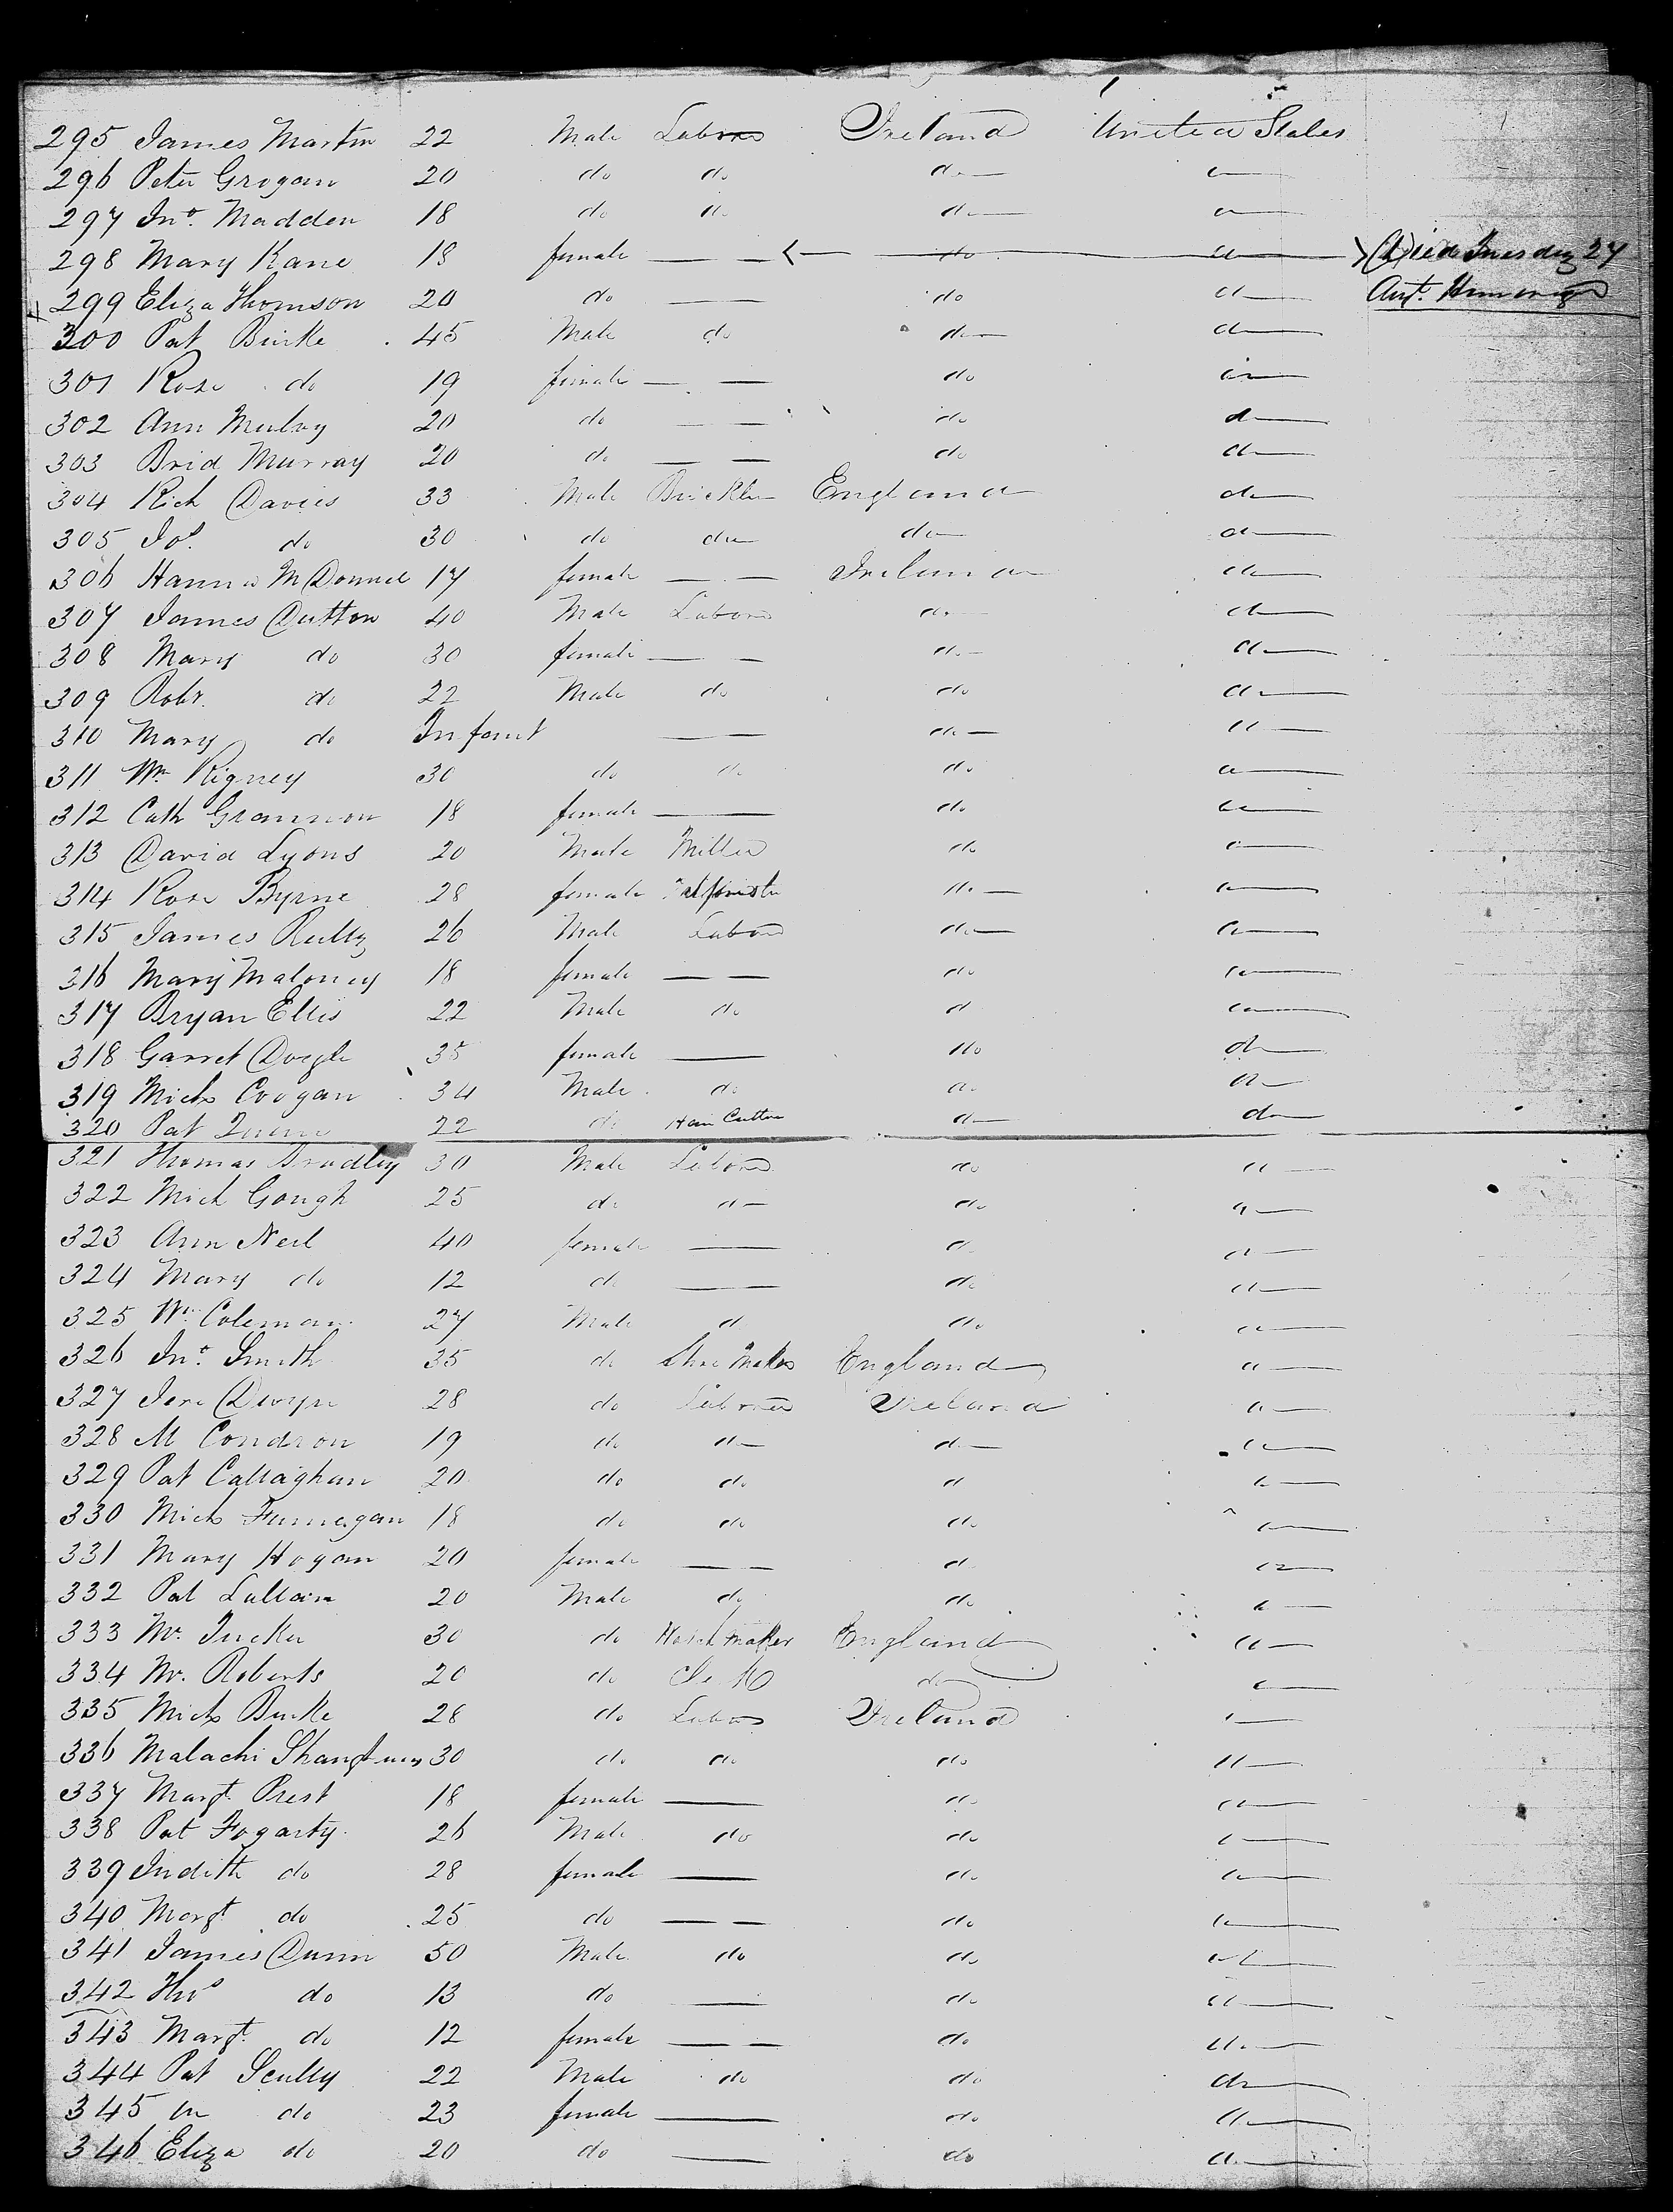 295 James Martin 22 Male Labores Ireland United States
296 Peter Grogan 20 do do do do
297 Jno. Madden 18 do do do do
298 Mary Kane 18 female — — do do Died Tuesday 27
299 Eliza Thomson 20 do — do do Aut.
300 Pat Burke 45 Male do do do
301 Rose do 19 female — — do do
302 Ann Mulvy 20 do — — do do
303 Brid Murray 20 do — — do do
304 Rich Davies 33 Male England do
305 Jos. do 30 do do do do
306 Hanna McDonnel 17 female — — Ireland do
307 James Dutton 40 Male Labores do do
308 Mary do 30 female — — do do
309 Robt. do 22 Male do do do
310 Mary do Infant — — do do
311 Wm Rigney 30 do do do do
312 Cath Grannon 18 female — do do
313 David Lyons 20 Male Miller do do
314 Rose Byrne 28 female do do
315 James Reilly 26 Male Labores do do
316 Mary Maloney 18 female — — do do
317 Bryan Ellis 22 Male do do do
318 Garret Doyle 35 female — do do
319 Mich Coogan 34 Male do do do
320 Pat Quinn 22 do Hair Cutter do do
321 Thomas Bradley 30 Male Labores do do
322 Mich Gough 25 do do do do
323 Ann Neil 40 female — do do
324 Mary do 12 do — do do
325 Wm Coleman 27 Male do do do
326 Jno. Smith 35 do Shoe Maker England do
327 Jere Dwyre 28 do Labores Ireland do
328 M Condron 19 do do do do
329 Pat Callaghan 20 do do do do
330 Mich Finnegan 18 do do do do
331 Mary Hogan 20 female — — do do
332 Pat Lallan 20 Male do do do
333 Tucker 30 do England do
334 Roberts 20 do Clerk do do
335 Mich Burke 28 do Labores Ireland do
336 Malachi 30 do do do do
337 Margt. Prest 18 female — do do
338 Pat Fogarty 26 Male do do do
339 Judith do 28 female — do do
340 Margt do 25 do — — do do
341 James Dunn 50 Male do do do
342 Thos do 13 do — do do
343 Margt. do 12 female — — do do
344 Pat Scully 22 Male do do do
345 do 23 female — do do
346 Eliza do 20 do — do do